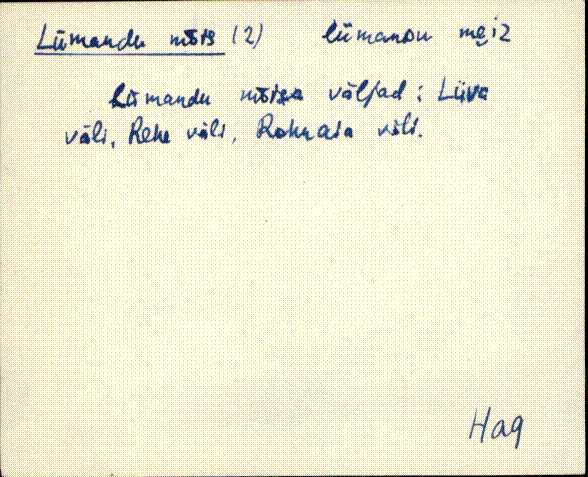 Lümandu mõis (2) lümanᴅu mẹiz
Lümandu mõisa väljad: Liiva
väli, Rehe väli, Rohuaia väli.
Hag